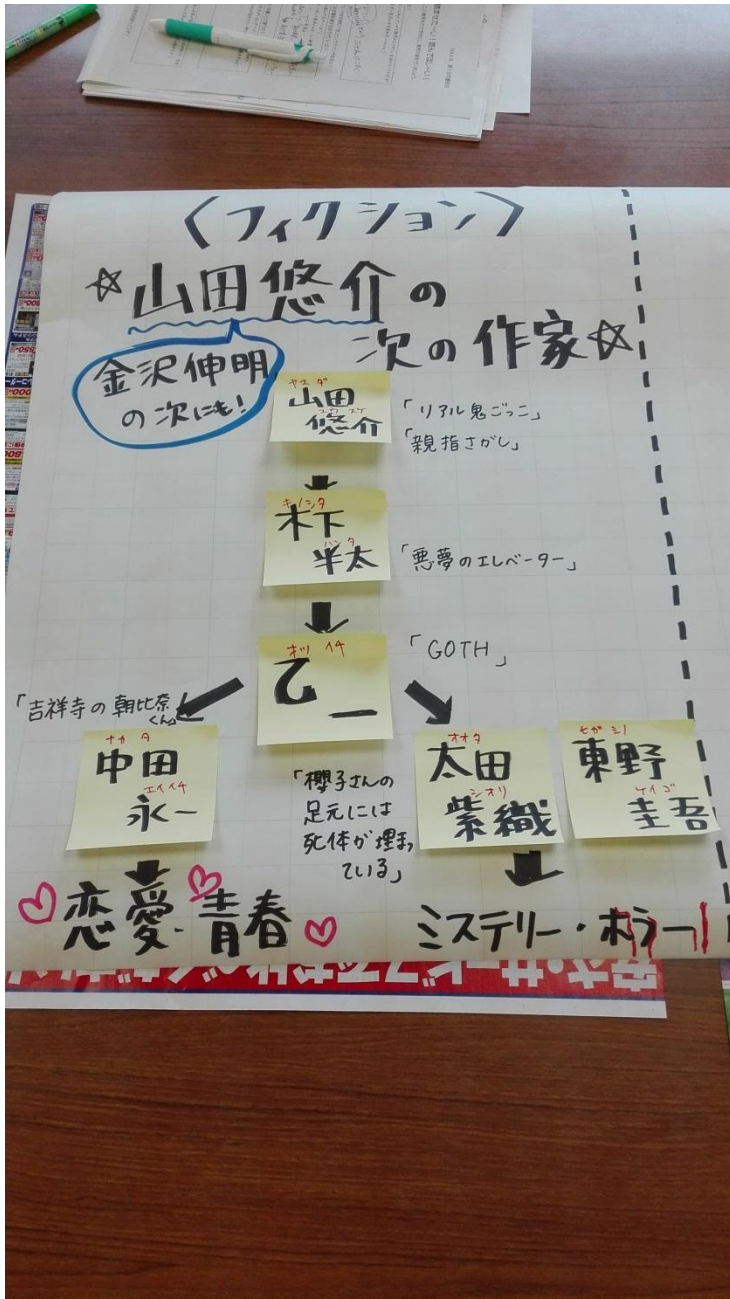 〈フィクション〉
☆山田悠介の
次の作家☆
金沢伸明
の次にも!
ヤマダ
山田
ユウスケ
悠介
「リアル鬼ごっこ」
「親指さがし」
キノシタ
木下
ハンタ
半太
「悪夢のエレベーター」
オツイチ
乙一
「GOTH」
「吉祥寺の朝比奈
くん」
ナカタ
中田
エイイチ
永一
「櫻子さんの
足元には
死体が埋まっ
ている」
オオタ
太田
シオリ
紫織
ヒガシノ
東野
ケイゴ
圭吾
恋愛・青春
ミステリー・ホラー